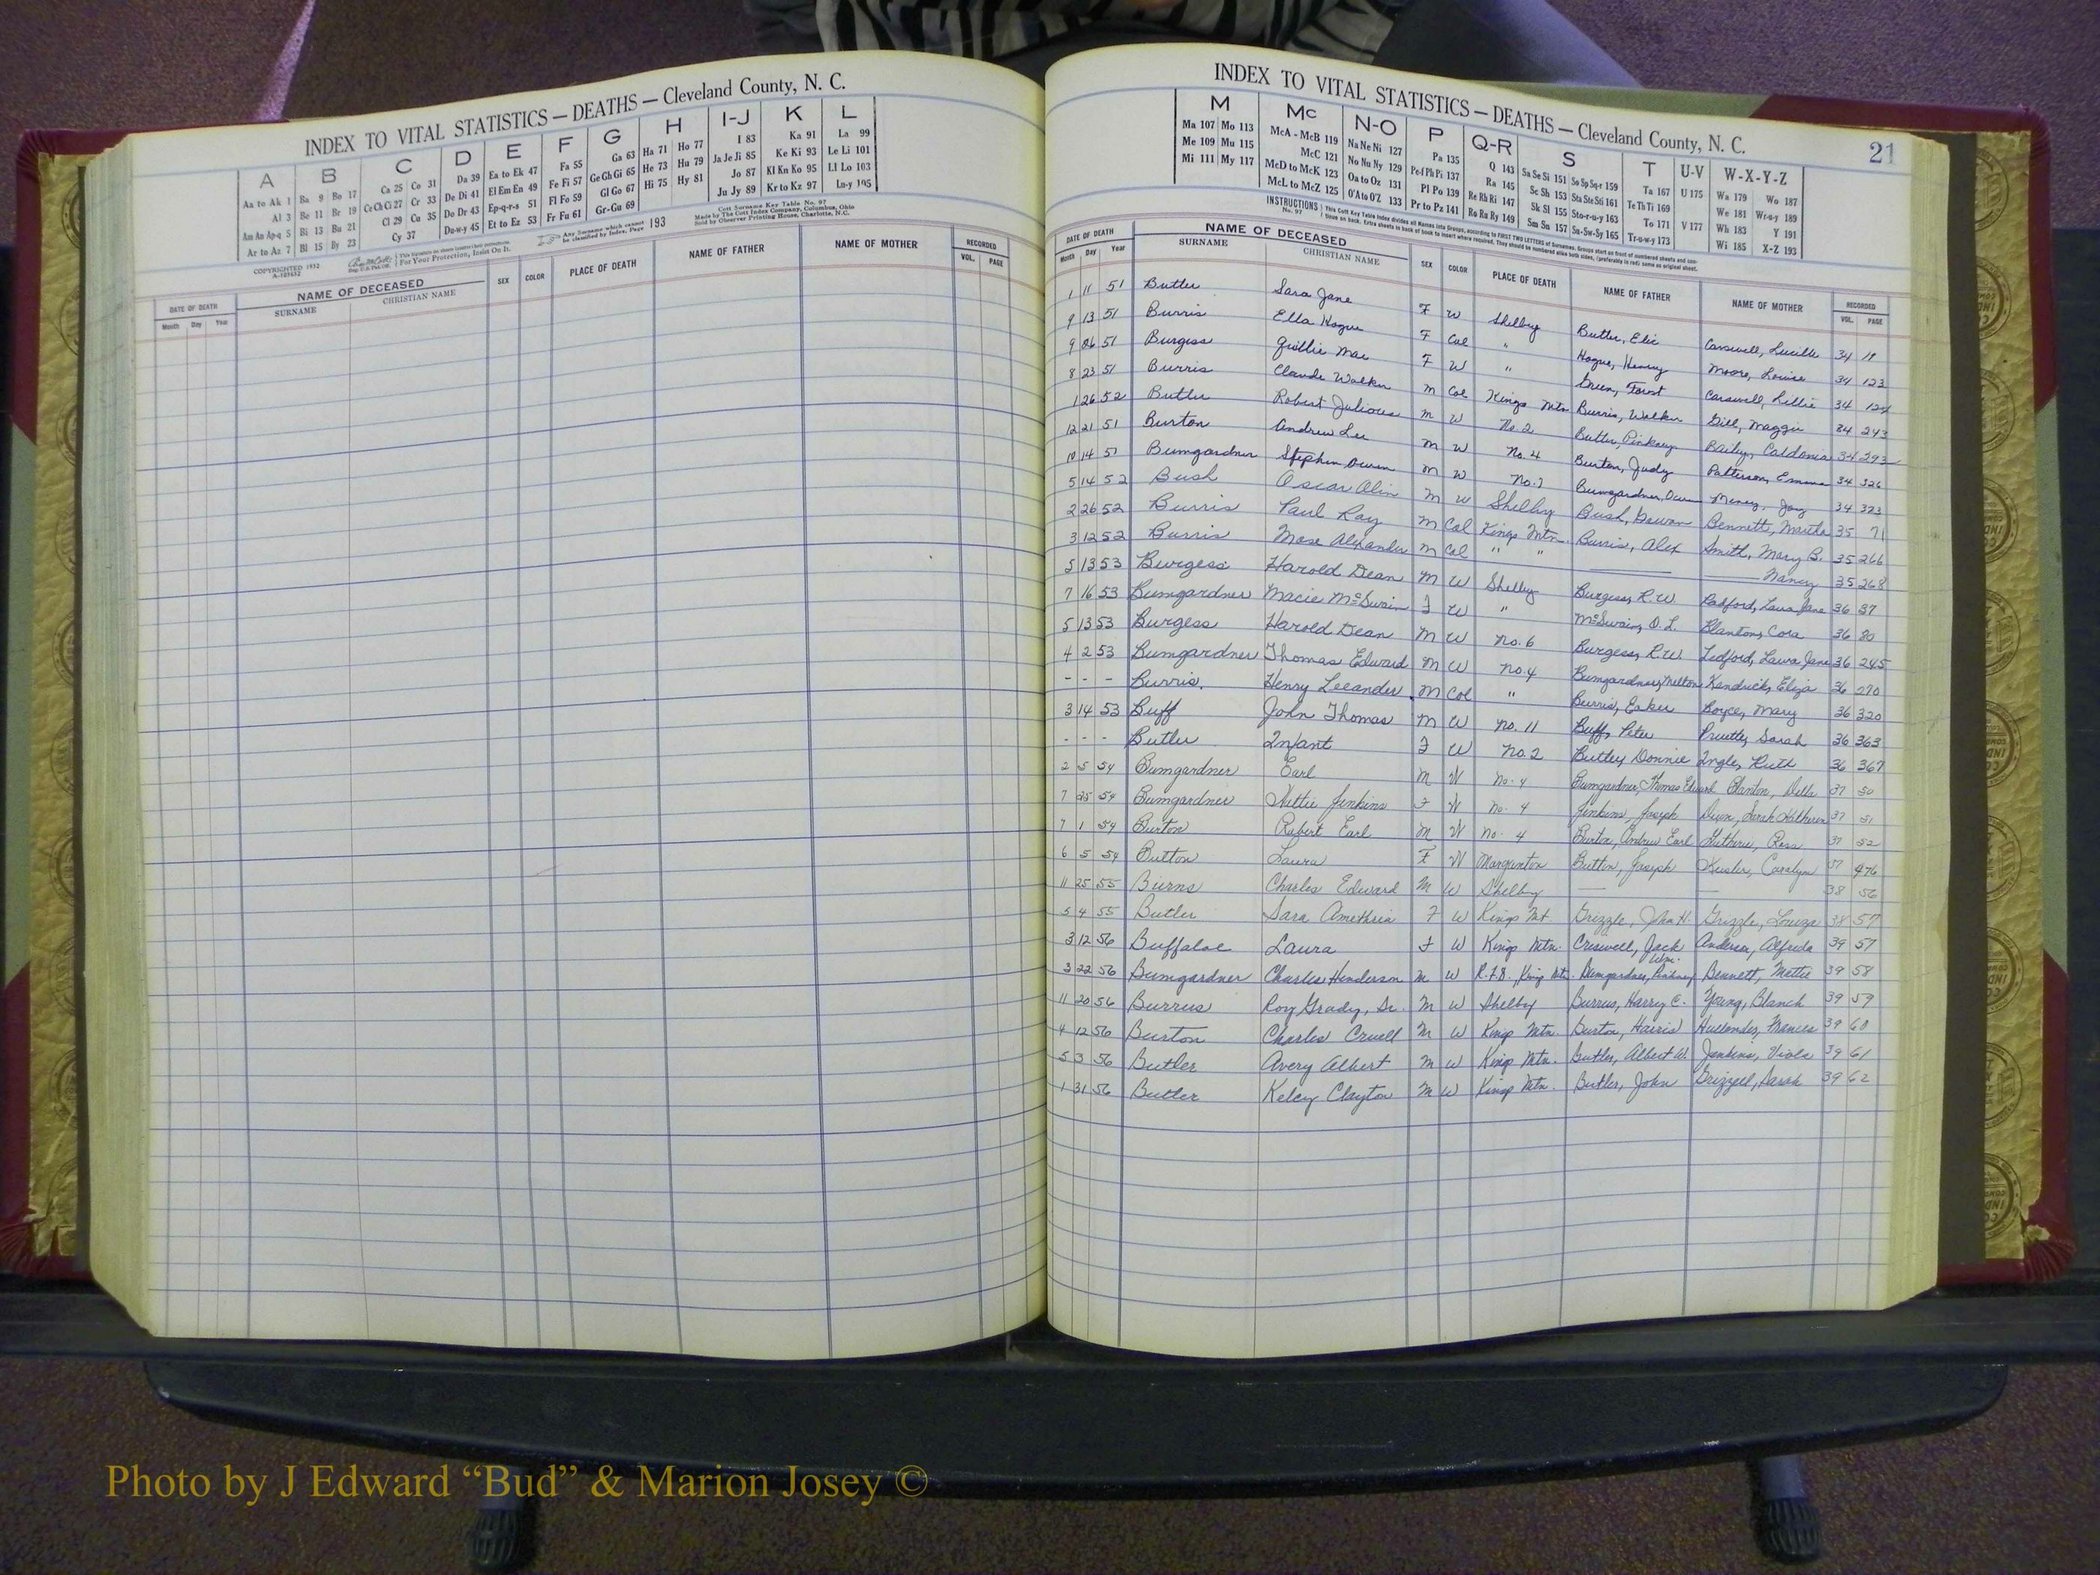 INDEX TO VITAL STATISTICS — DEATHS — Cleveland County, N. C.
A B C D E F G H I-J K L
Aa to Ak 1 Ba 9 Bo 17 Ca 25 Co 31 Da 39 Ea to Ek 47 Fa 55 Ga 63 Ha 71 Ho 77 I 83 Ka 91 La 99
Al 3 Be 11 Br 19 Ce Ch Ci 27 Cr 33 De Di 41 El Em En 49 Fe Fi 57 Ge Gh Gi 65 He 73 Hu 79 Ja Je Ji 85 Ke Ki 93 Le Li 101
Am An Ap-q 5 Bi 13 Bu 21 Cl 29 Cu 35 Do Dr 43 Ep-q-r-s 51 Fl Fo 59 Gl Go 67 Hi 75 Hy 81 Jo 87 Kl Kn Ko 95 Ll Lo 103
Ar to Az 7 Bl 15 By 23 Cy 37 Du-w-y 45 Et to Ez 53 Fr Fu 61 Gr-Gu 69 Ju Jy 89 Kr to Kz 97 Lu-y 105
COPYRIGHTED 1932
A-103632
For Your Protection, Insist On It.
Any Surname which cannot be classified by Index, Page 193
Cott Surname Key Table No. 97
Made by The Cott Index Company, Columbus, Ohio
Sold by Observer Printing House, Charlotte, N.C.
DATE OF DEATH NAME OF DECEASED SEX COLOR PLACE OF DEATH NAME OF FATHER NAME OF MOTHER RECORDED
Month Day Year SURNAME CHRISTIAN NAME VOL. PAGE
INDEX TO VITAL STATISTICS — DEATHS — Cleveland County, N. C. 21
M Mc N-O P Q-R S T U-V W-X-Y-Z
Ma 107 Mo 113 McA - McB 119 Na Ne Ni 127 Pa 135 Q 143 Sa Se Si 151 So Sp Sq-r 159 Ta 167 U 175 Wa 179 Wo 187
Me 109 Mu 115 McC 121 No Nu Ny 129 Pe-f Ph Pi 137 Ra 145 Sc Sh 153 Sta Ste Sti 161 Te Th Ti 169 We 181 Wr-u-y 189
Mi 111 My 117 McD to McK 123 Oa to Oz 131 Pl Po 139 Re Rh Ri 147 Sk Sl 155 Sto-r-u-y 163 To 171 V 177 Wh 183 Y 191
McL to McZ 125 O'A to O'Z 133 Pr to Pz 141 Ro Ru Ry 149 Sm Sn 157 Su-Sw-Sy 165 Tr-u-w-y 173 Wi 185 X-Z 193
INSTRUCTIONS No. 97 This Cott Key Table Index divides all Names into Groups, according to FIRST TWO LETTERS of Surnames. Groups start on front of numbered sheets and continue on back. Extra sheets in back of book to insert where required. They should be numbered alike both sides, (preferably in red) same as original sheet.
DATE OF DEATH NAME OF DECEASED SEX COLOR PLACE OF DEATH NAME OF FATHER NAME OF MOTHER RECORDED
Month Day Year SURNAME CHRISTIAN NAME VOL. PAGE
1 11 51 Butler Sara Jane F W Shelby Butler, Elic Carswell, Lucille 34 18
9 13 51 Burris Ella Hogue F Col " Hogue, Henry Moore, Louise 34 123
9 26 51 Burgess Quillie Mae F W " Green, Forest Carswell, Lillie 34 124
8 23 51 Burris Claude Walker M Col Kings Mtn Burris, Walker Gill, Maggie 34 243
1 26 52 Butler Robert Julious M W No. 2 Butler, Pinkney Bailey, Caldonia 34 293
12 21 51 Burton Andrew Lee M W No. 4 Burton, Judy Patterson, Emma 34 326
10 14 51 Bumgardner Stephen Owen M W No. 7 Bumgardner, Owen Joy 34 323
5 14 52 Bush Oscar Olin M W Shelby Bush, Bennett, Martha 35 71
2 26 52 Burris Paul Ray M Col Kings Mtn. Burris, Alex Smith, Mary B. 35 266
3 12 52 Burris Mose Alexander M Col " " —— —— Nancy 35 268
5 13 53 Burgess Harold Dean M W Shelby Burgess, R.W. Ledford, Laura Jane 36 37
7 16 53 Bumgardner Macie McSwain F W " McSwain, O. L. Blanton, Cora 36 80
5 13 53 Burgess Harold Dean M W No. 6 Burgess, R.W. Ledford, Laura Jane 36 245
4 2 53 Bumgardner Thomas Edward M W No. 4 Bumgardner, Milton Kendrick, Eliza 36 270
- - - Burris. Henry Leeander M Col " Burris, Eaker Boyce, Mary 36 320
3 14 53 Buff John Thomas M W No. 11 Buff, Peter Pruette, Sarah 36 363
- - - Butler Infant F W No. 2 Butler, Donnie Ingle, Ruth 36 367
2 5 54 Bumgardner Earl M W No. 4 Bumgardner, Thomas Edward Blanton, Della 37 50
7 25 54 Bumgardner Nettie Jenkins F W No. 4 Jenkins, Joseph Dixon, Sarah Katherine 37 51
7 1 54 Burton Robert Earl M W No. 4 Burton, Andrew Earl Guthrie, Rosa 37 52
6 5 54 Button Laura F W Morganton Button, Joseph Carolyn 37 476
11 25 55 Burns Charles Edward M W Shelby — — 38 56
5 4 55 Butler Sara Amethria F W Kings Mt. Grizzle, John H. Grizzle, Louiza 38 57
3 12 56 Buffaloe Laura F W Kings Mtn. Creswell, Jack Anderson, Alfreda 39 57
3 22 56 Bumgardner Charles Henderson M W R.F.D., Kings Mtn. Bumgardner, Wm. Pinkney Bennett, Mattie 39 58
11 20 56 Burrus Roy Grady, Sr. M W Shelby Burrus, Harry C. Young, Blanch 39 59
4 12 56 Burton Charles Cruell M W Kings Mtn. Burton, Harris Hullender, Frances 39 60
5 3 56 Butler Avery Albert M W Kings Mtn. Butler, Albert W. Jenkins, Viola 39 61
1 31 56 Butler Kelcy Clayton M W Kings Mtn. Butler, John Grizzell, Sarah 39 62
Photo by J Edward “Bud” & Marion Josey ©